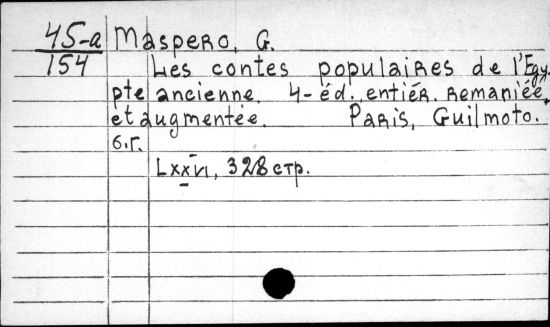 45-a Maspero, G.
154 Les contes populaires de l'Egy-
pte ancienne. 4-éd. entiér. remaniée,
et augmentée. Paris, Guilmoto.
б.г.
LXXVI, 328 стр.